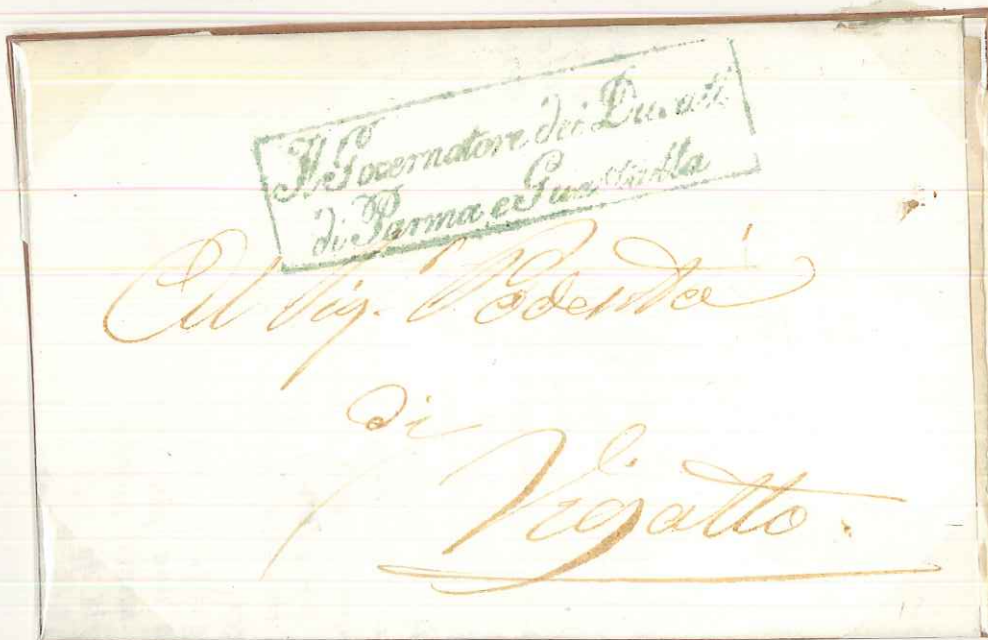 Il Governatore dei Ducati
di Parma e Guastalla
Al Sig. Podestà
di
Vigatto.